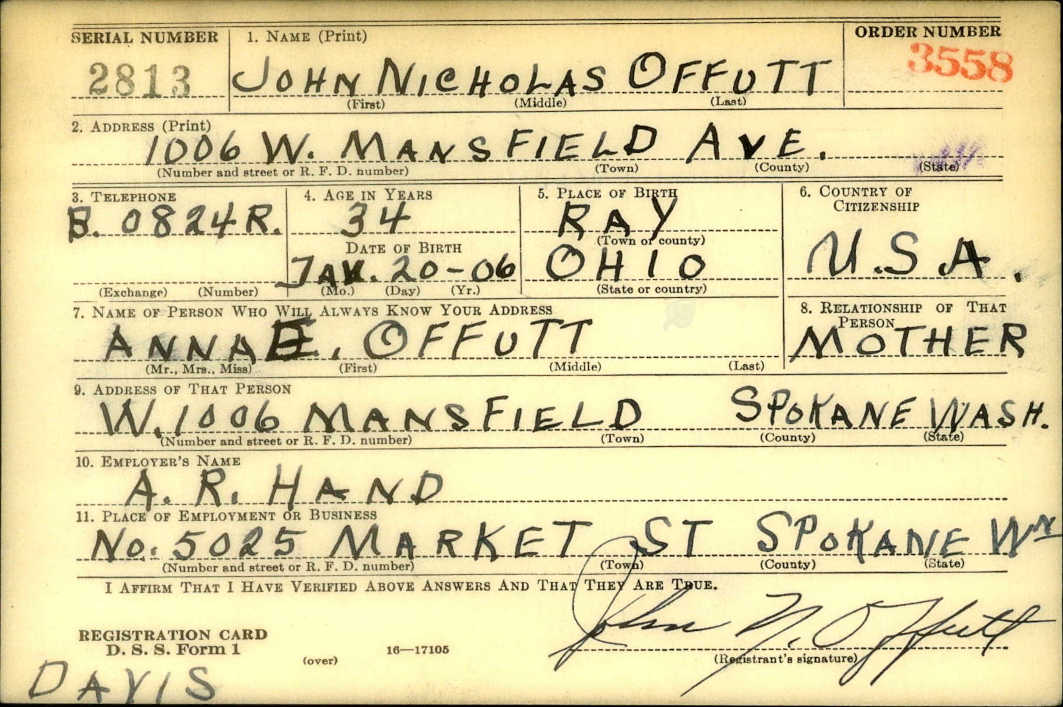 SERIAL NUMBER 1. NAME (Print) ORDER NUMBER
2813 JOHN NICHOLAS OFFUTT 3558
(First) (Middle) (Last)
2. ADDRESS (Print)
1006 W. MANSFIELD AVE.
(Number and street or R. F. D. number) (Town) (County) (State)
3. TELEPHONE 4. AGE IN YEARS 5. PLACE OF BIRTH 6. COUNTRY OF CITIZENSHIP
B. 0824R. 34 RAY
(Town or county)
DATE OF BIRTH
JAN. 20-06 OHIO U.S.A.
(Exchange) (Number) (Mo.) (Day) (Yr.) (State or country)
7. NAME OF PERSON WHO WILL ALWAYS KNOW YOUR ADDRESS 8. RELATIONSHIP OF THAT PERSON
ANNA E. OFFUTT MOTHER
(Mr., Mrs., Miss) (First) (Middle) (Last)
9. ADDRESS OF THAT PERSON
W. 1006 MANSFIELD SPOKANE WASH.
(Number and street or R. F. D. number) (Town) (County) (State)
10. EMPLOYER'S NAME
A. R. HAND
11. PLACE OF EMPLOYMENT OR BUSINESS
No. 5025 MARKET ST SPOKANE Wn
(Number and street or R. F. D. number) (Town) (County) (State)
I AFFIRM THAT I HAVE VERIFIED ABOVE ANSWERS AND THAT THEY ARE TRUE.
John N. Offutt
REGISTRATION CARD
D. S. S. Form 1 (over) 16—17105 (Registrant's signature)
DAVIS